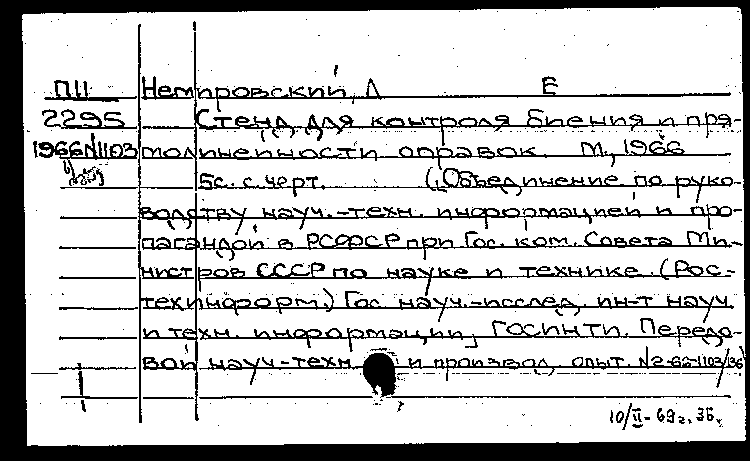 П11 Немировский, Л Е
2295 Стенд для контроля биения и пря-
1966N1103 молинейности оправок. М., 1966
5с. с черт. (Объединение по руко-
водству науч.-техн. информацией и про-
пагандой в РСФСР при Гос. ком. Совета Ми-
нистров СССР по науке и технике. (Рос-
техинформ.) Гос науч.-исслед. ин-т науч
и техн. информации, ГОСИНТИ. Передо-
вой науч-техн. и производ. опыт. №2-62-1103/36)
10/II-69г. ЗБ.